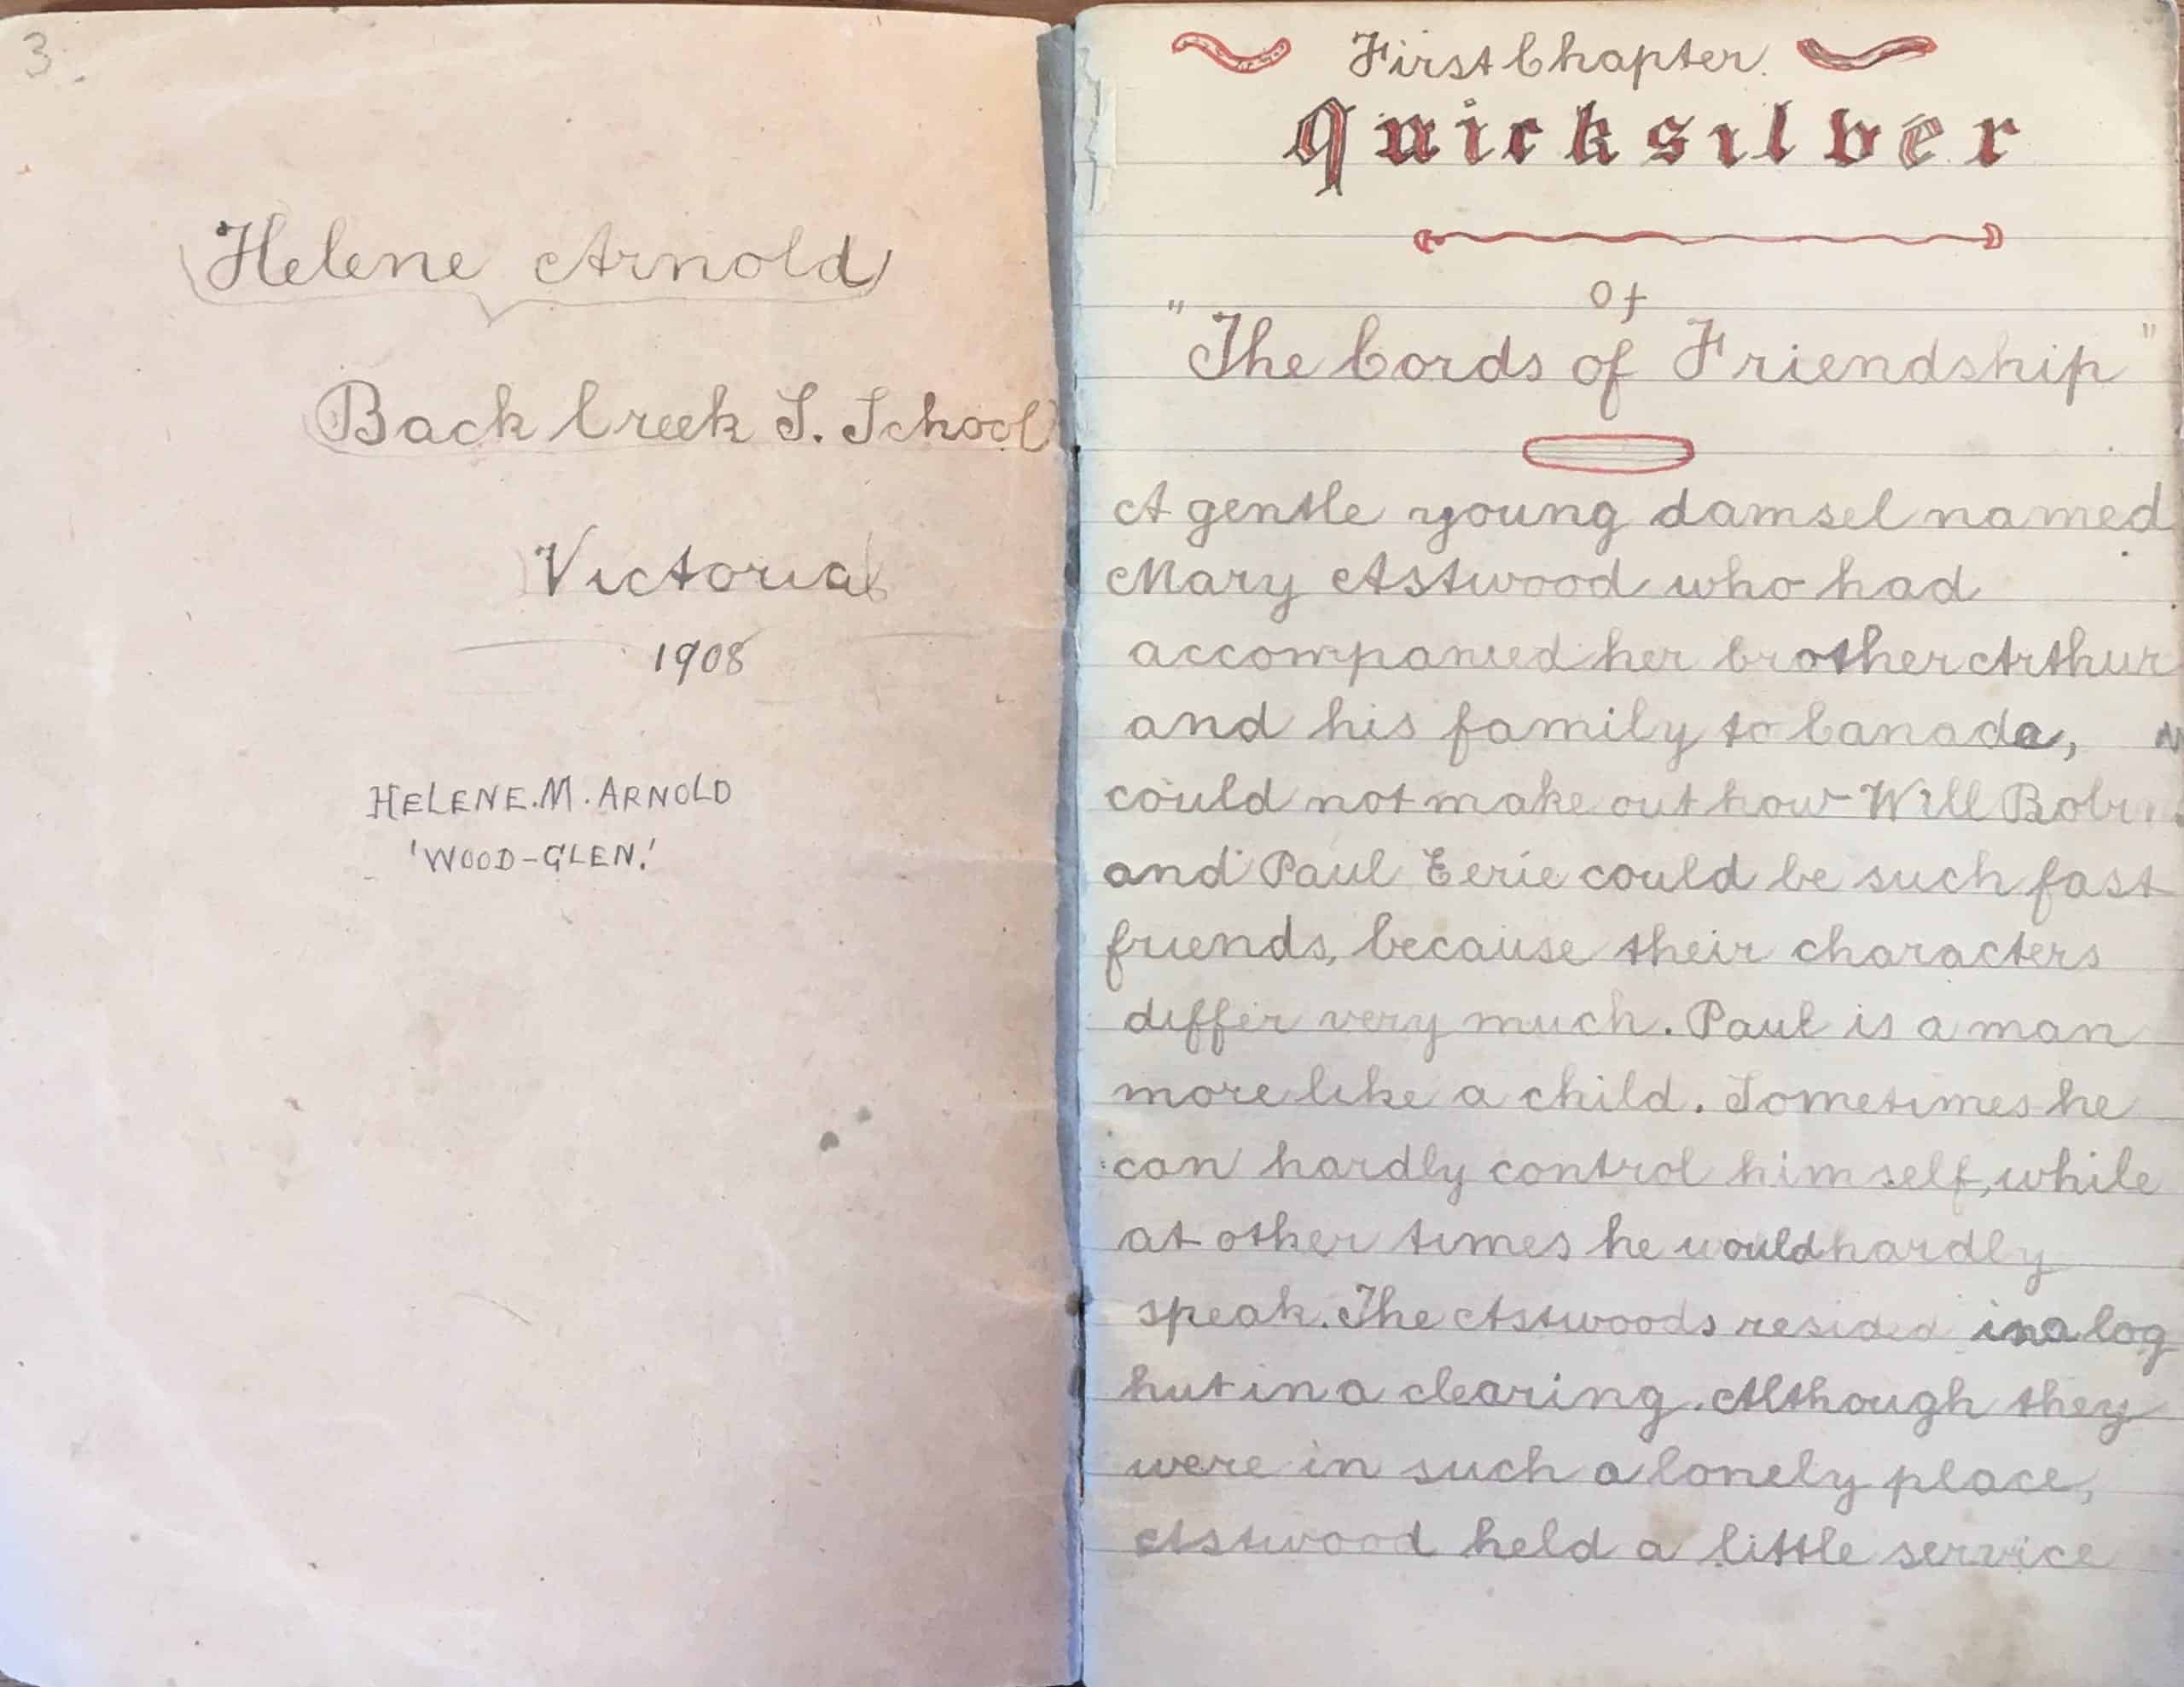 3.
Helene Arnold
Back Creek S. School
Victoria
1908
HELENE.M.ARNOLD
'WOOD-GLEN.'
First Chapter.
quicksilver
Of
"The Cords of Friendship"
A gentle young damsel named
Mary Astwood who had
accompanied her brother Arthur
and his family to Canada,
could not make out how Will
and Paul Eerie could be such fast
friends, because their characters
differ very much. Paul is a man
more like a child. Sometimes he
can hardly control himself, while
at other times he would hardly
speak. The Astwoods resided in a log
hut in a clearing. Although they
were in such a lonely place,
Astwood held a little service